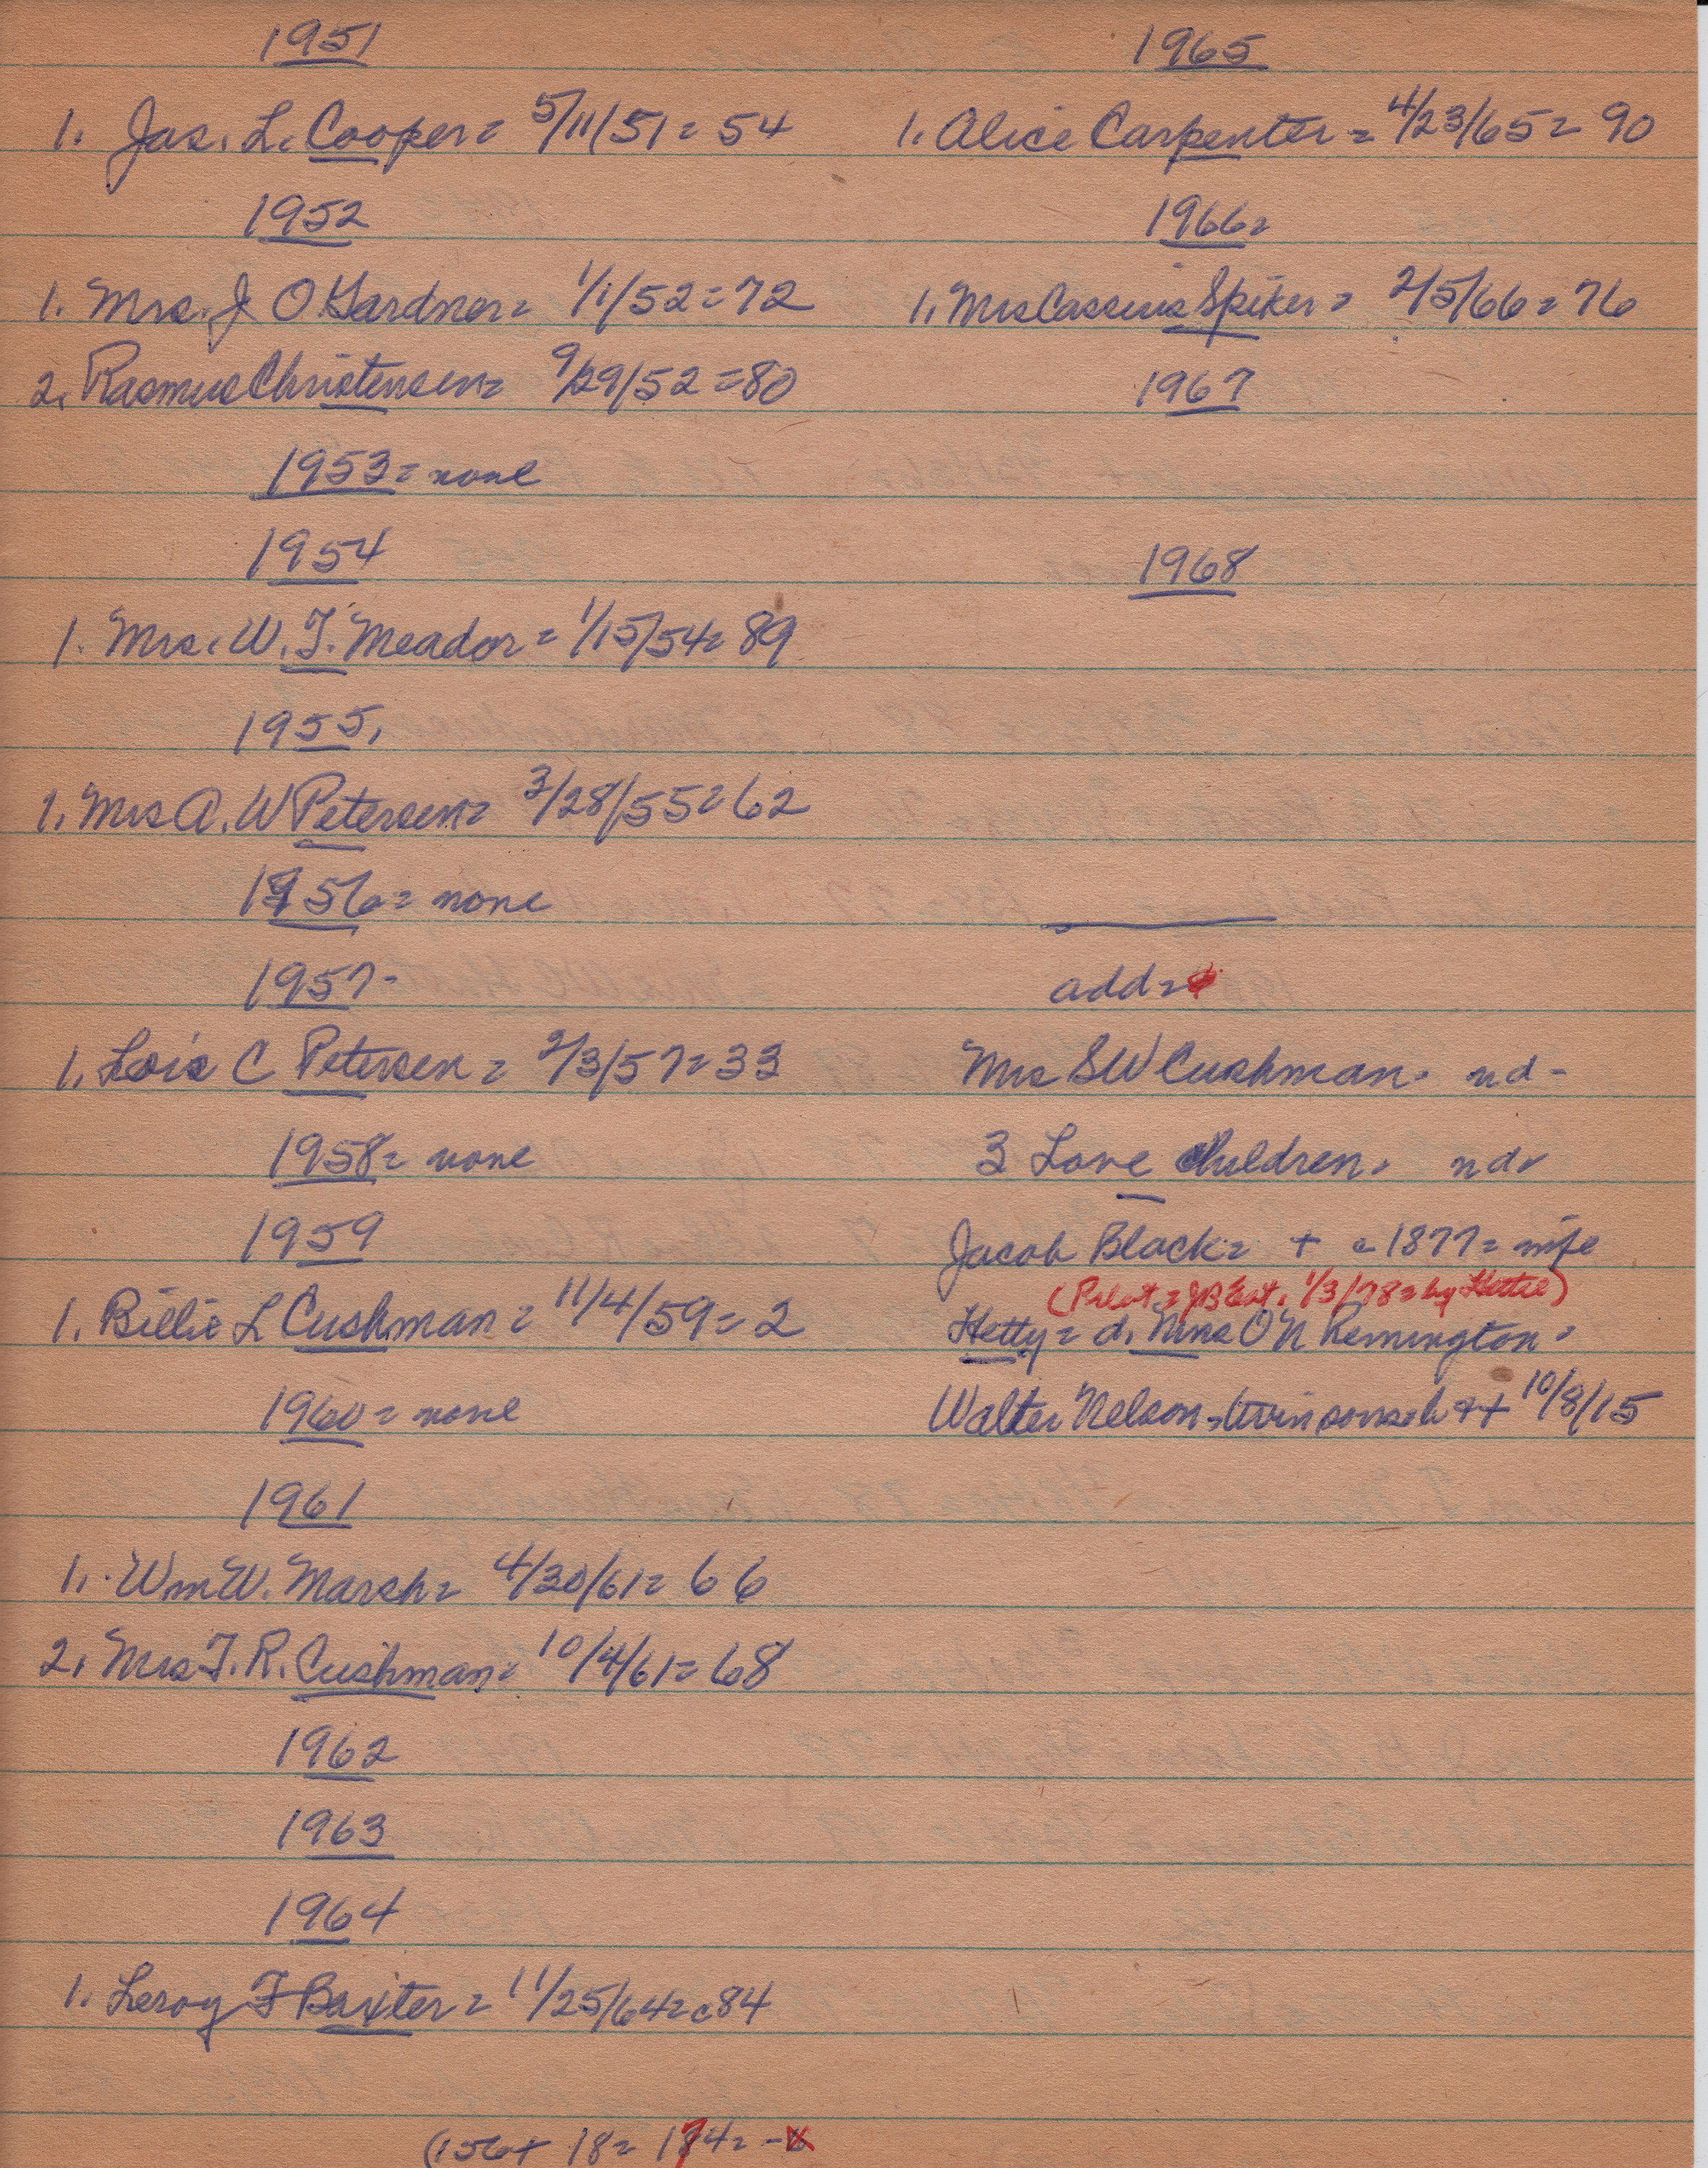 1951
1. Jas. L. Cooper = 5/11/51 = 54
1952
1. Mrs. J O Gardner = 1/1/52 = 72
2. Rasmus Christensen = 9/29/52 = 80
1953 = none
1954
1. Mrs. W. T. Meador = 1/15/54 = 89
1955.
1. Mrs A. W Petersen = 3/28/55 = 62
1956 = none
1957 -
1. Lois C Petersen = 2/3/57 = 33
1958 = none
1959
1. Billie L Cushman = 11/4/59 = 2
1960 = none
1961
1. Wm W. Marsh = 4/30/61 = 66
2. Mrs T. R. Cushman = 10/4/61 = 68
1962
1963
1964
1. Leroy F Baxter = 11/25/64 = c84
(156 + 18 = 174 = -
1965
1. Alice Carpenter = 4/23/65 = 90
1966 =
1. Mrs Cassius Spiker = 2/5/66 = 76
1967
1968
add =
Mrs SW Cushman. nd -
3 Love children. nd
Jacob Black = + c 1877 = wife
(Probt = JB Est. 1/3/78 = by Hettie)
Hetty = d. Mrs O N Remington =
Walter Nelson = twin sons = b + + 10/8/15